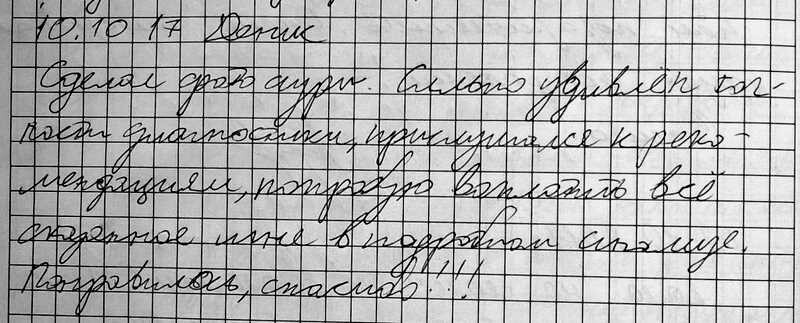 10.10 17 Денис
Сделал фото ауры. Сильно удивлён точ-
ности диагностики, прислушался к реко-
мендациям, попробую воплотить всё
сказанное мне в подробном анализе.
Понравилось, спасибо!!!!